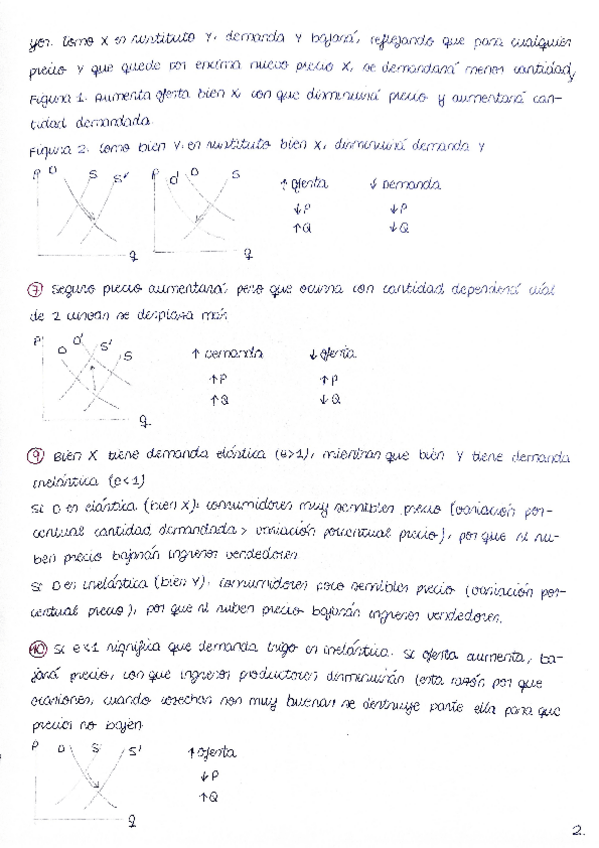 yor. Como X es sustituto Y, demanda Y bajará, reflejando que para cualquier
precio Y que quede por encima nuevo precio X, se demandará menor cantidad,
Figura 1. Aumenta oferta bien X, con que disminuirá precio y aumentará can-
tidad demandada.
Figura 2. Como bien Y es sustituto bien X, disminuirá demanda Y
P D S S' P D' D S ↑ oferta ↓ Demanda
↓P ↓P
↑Q ↓Q
Q Q
7 Seguro precio aumentará, pero que ocurra con cantidad dependerá cuál
de 2 curvas se desplaza más.
P D D' S' S ↑ Demanda ↓ oferta
↑P ↑P
↑Q ↓Q
Q
9 Bien X tiene demanda elástica (e>1), mientras que bien Y tiene demanda
inelástica (e<1)
Si D es elástica (bien X): consumidores muy sensibles precio (variación por-
centual cantidad demandada > variación porcentual precio), por que si su-
ben precio bajarán ingresos vendedores.
Si D es inelástica (bien Y): consumidores poco sensibles precio (variación por-
centual precio), por que si suben precio bajarán ingresos vendedores.
10 Si e<1 significa que demanda trigo es inelástica. Si oferta aumenta, ba-
jará precio, con que ingresos productores disminuirán (esta razón por que
ocasiones, cuando cosechas son muy buenas se destruye parte ella para que
precios no bajen
P D S S' ↑ oferta
↓P
↑Q
Q
2.